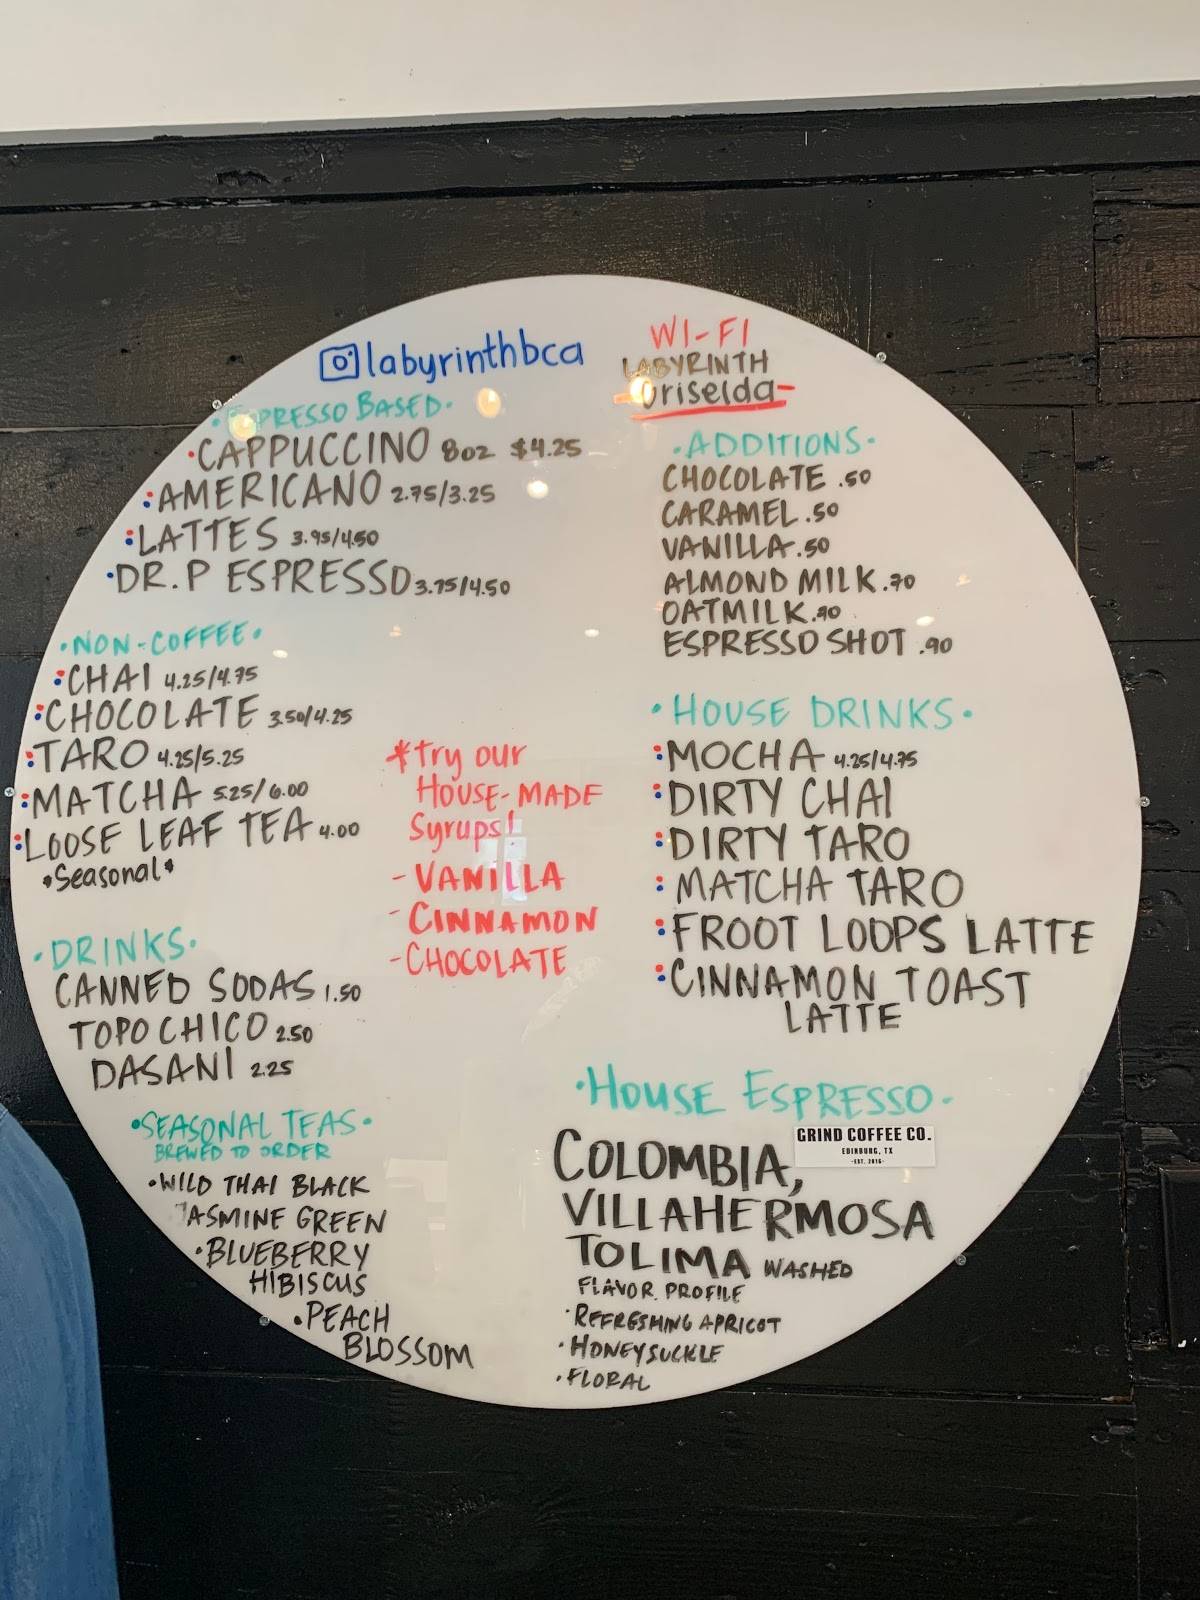 labyrinthbca
WI-FI
LABYRINTH
ESPRESSO BASED
CAPPUCCINO 8oz $4.25
AMERICANO 2.75/3.25
LATTES 3.95/4.50
DR. P ESPRESSO 3.75/4.50
·NON-COFFEE·
CHAI 4.25/4.75
CHOCOLATE 3.50/4.25
TARO 4.25/5.25
MATCHA 5.25/6.00
LOOSE LEAF TEA 4.00
*Seasonal*
·DRINKS·
CANNED SODAS 1.50
TOPO CHICO 2.50
DASANI 2.25
·SEASONAL TEAS·
BREWED TO ORDER
·WILD THAI BLACK
JASMINE GREEN
·BLUEBERRY
HIBISCUS
·PEACH
BLOSSOM
*Try our
HOUSE-MADE
Syrups!
- VANILLA
- CINNAMON
- CHOCOLATE
·ADDITIONS·
CHOCOLATE .50
CARAMEL .50
VANILLA .50
ALMOND MILK .70
OATMILK .90
ESPRESSO SHOT .90
·HOUSE DRINKS·
MOCHA 4.25/4.75
DIRTY CHAI
DIRTY TARO
MATCHA TARO
FROOT LOOPS LATTE
CINNAMON TOAST
LATTE
·HOUSE ESPRESSO·
GRIND COFFEE CO.
EDINBURG, TX
-EST. 2016-
COLOMBIA,
VILLAHERMOSA
TOLIMA WASHED
FLAVOR PROFILE
·REFRESHING APRICOT
·HONEYSUCKLE
·FLORAL